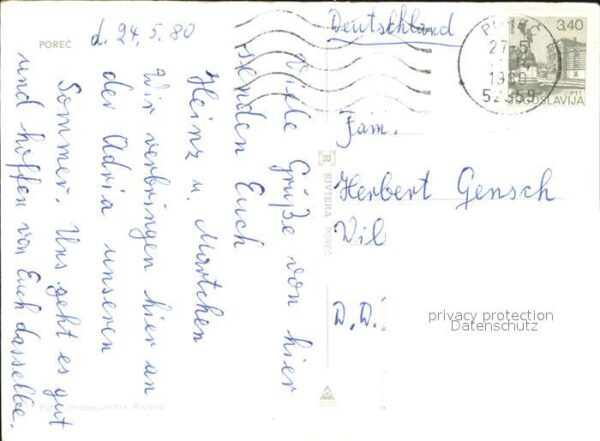 POREČ
d. 24.5.80
Viele Grüße von hier
senden Euch
Heinz u. Martchen
Wir verbringen hier an
der Adria unseren
Sommer. Uns geht es gut
und hoffen von Euch dasselbe.
Deutschland
27-5
1980
3,40
PTT
JUGOSLAVIJA
R RIVIERA POREČ
Fam.
Herbert Gensch
Wil
D.D.
privacy protection
Datenschutz
Riviera